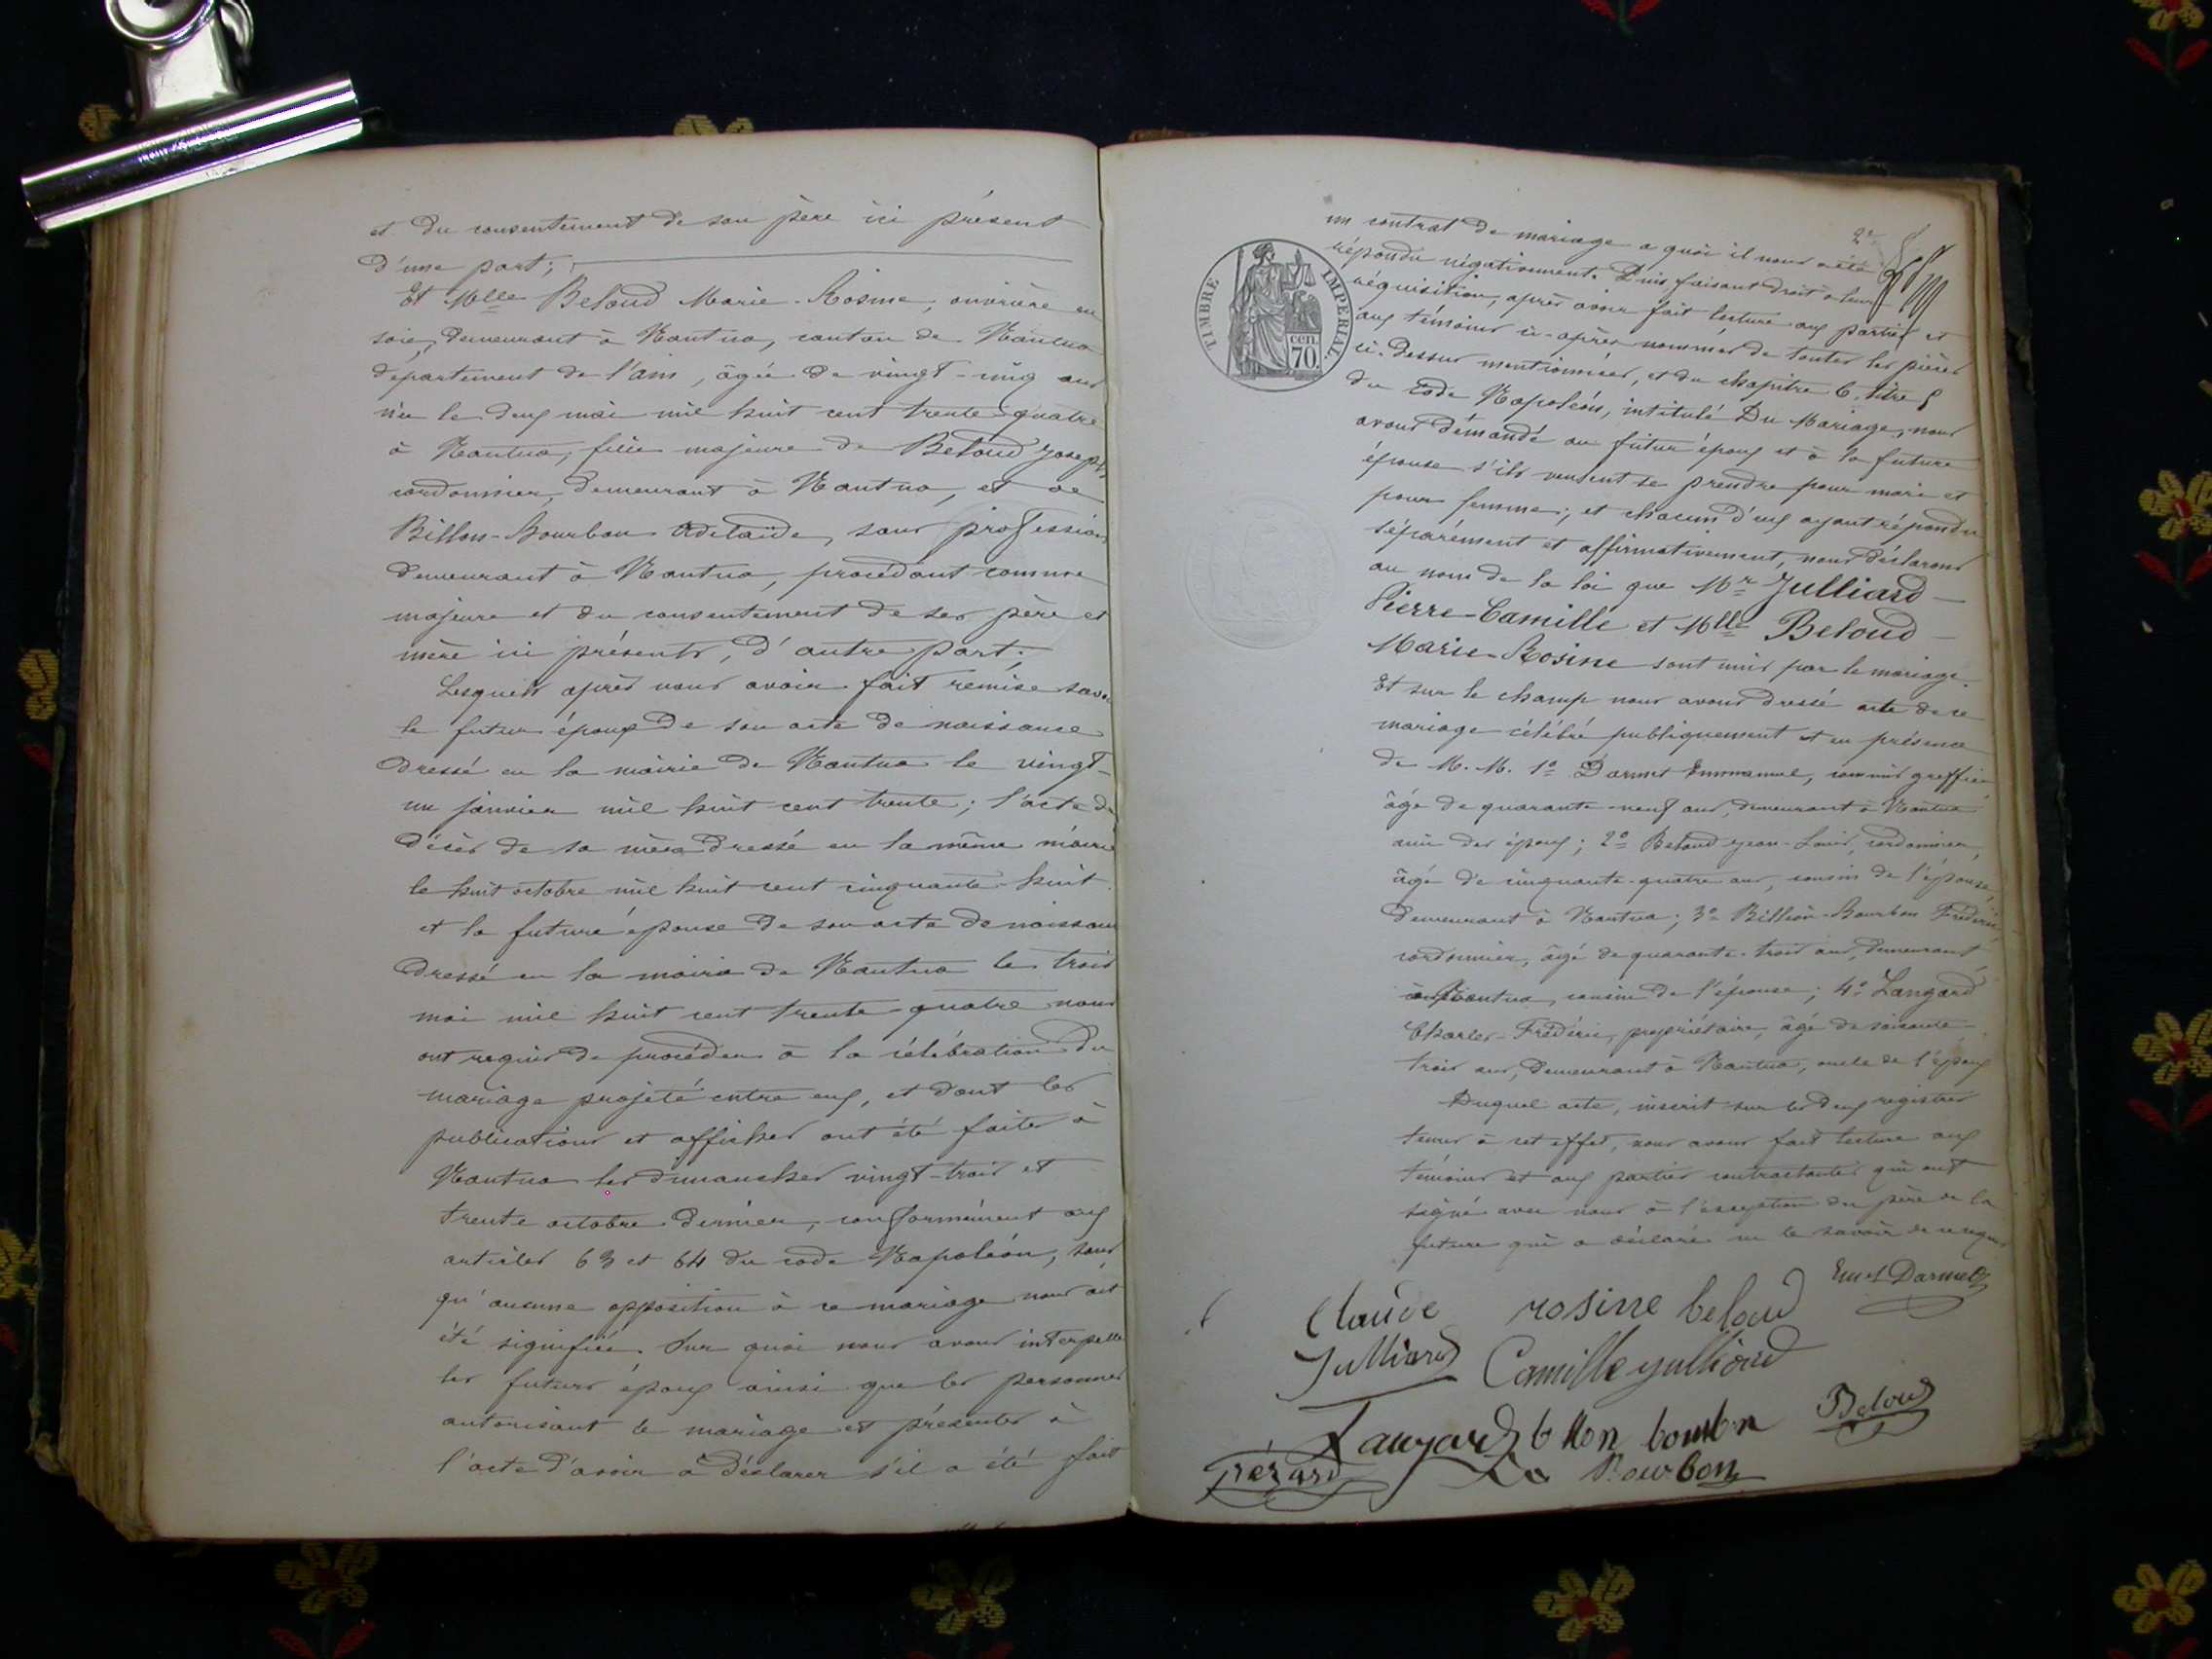 et du consentement de son père ici présent
d'une part;
Et Mlle Beloud Marie-Rosine, ouvrière en
soie, demeurant à Nantua, canton de Nantua
département de l'ain, âgée de vingt-cinq ans
née le deux mai mil huit cent trente quatre
à Nantua, fille majeure de Beloud Joseph,
cordonnier, demeurant à Nantua, et de
Billon-Bourbon Adélaïde, sans profession
demeurant à Nantua, procédant comme
majeure et du consentement de ses père et
mère ici présents, d'autre part.
Lesquels après nous avoir fait remise savoir
le futur époux de son acte de naissance
dressé en la mairie de Nantua le vingt-
un janvier mil huit cent trente; l'acte de
décès de sa mère dressé en la même mairie
le huit octobre mil huit cent cinquante-huit
et la future épouse de son acte de naissance
dressé en la mairie de Nantua le trois
mai mil huit cent trente-quatre nous
ont requis de procéder à la célébration du
mariage projeté entre eux, et dont les
publications et affiches ont été faites à
Nantua les dimanches vingt-trois et
trente octobre dernier, conformément aux
articles 63 et 64 du code Napoléon, sans
qu'aucune opposition à ce mariage nous ait
été signifiée. Sur quoi nous avons interpellé
les futurs époux ainsi que les personnes
autorisant le mariage et présentes à
l'acte d'avoir à déclarer s'il a été fait
2e
TIMBRE IMPERIAL.
cen.
70.
un contrat de mariage a quoi il nous a été
répondu négativement. Puis faisant droit à leur
réquisition, après avoir fait lecture aux parties et
aux témoins ci-après nommés de toutes les pièces
ci-dessus mentionnées, et du chapitre 6. titre 5
du code Napoléon, intitulé Du Mariage, nous
avons demandé au futur époux et à la future
épouse s'ils veulent se prendre pour mari et
pour femme; et chacun d'eux ayant répondu
séparément et affirmativement, nous déclarons
au nom de la loi que Mr Julliard
Pierre-Camille et Mlle Beloud
Marie-Rosine sont unis par le mariage.
Et sur le champ nous avons dressé acte de ce
mariage célébré publiquement et en présence
de M. M. 1o Darmet Emmanuel, commis greffier
âgé de quarante-neuf ans, demeurant à Nantua
ami des époux; 2o Beloud Jean-Louis, cordonnier,
âgé de cinquante-quatre ans, cousin de l'épouse,
demeurant à Nantua; 3o Billion-Bourbon Frédéric,
cordonnier, âgé de quarante-trois ans, demeurant
à Nantua, cousin de l'épouse; 4o Langard
Charles-Frédéric, propriétaire, âgé de soixante-
trois ans, demeurant à Nantua, oncle de l'époux
Duquel acte, inscrit sur les deux registres
tenus à cet effet, nous avons fait lecture aux
témoins et aux parties contractantes qui ont
signé avec nous à l'exception du père de la
future qui a déclaré ne le savoir de ce requis
Claude rosine beloud Emel Darmet
Julliard Camille Julliard
Langard billon bourbon Beloud
Bourbon